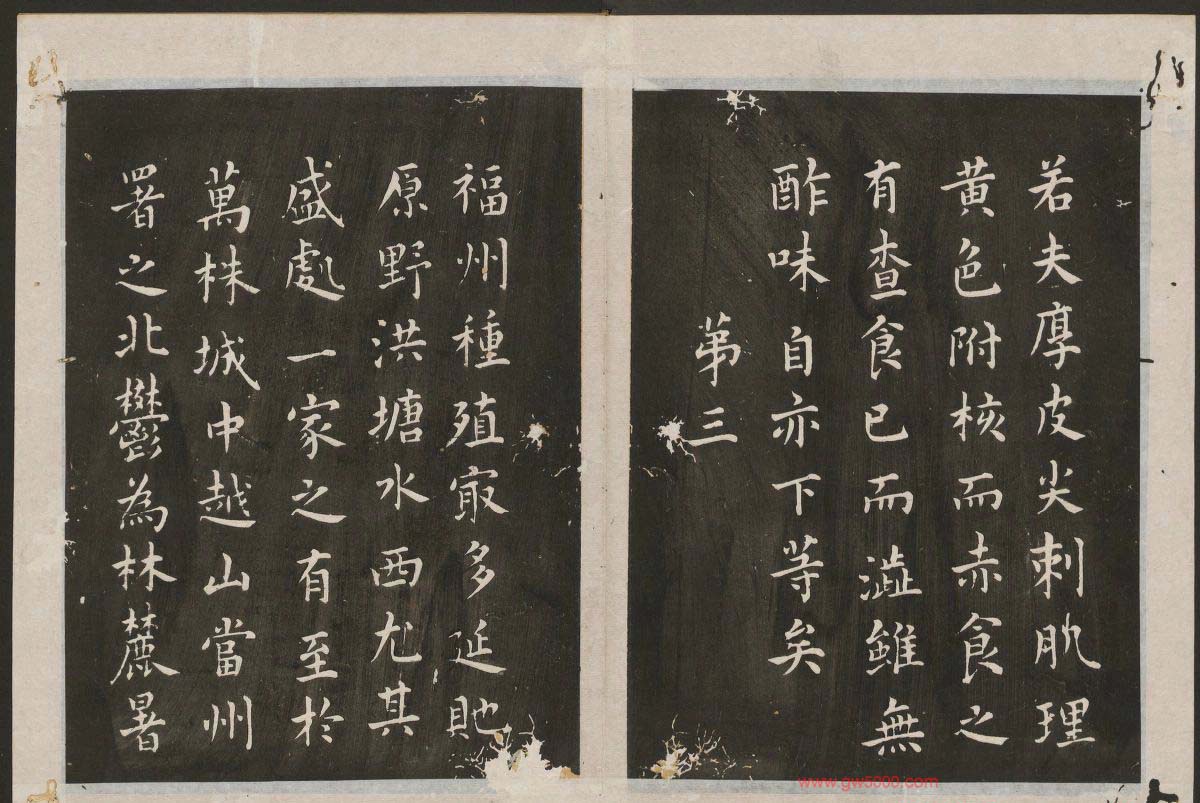 若夫厚皮尖刺肌理
黄色附核而赤食之
有查食已而澁雖無
酢味自亦下等矣
苐三
福州種殖㝡多延貤
原野洪塘水西尤其
盛處一家之有至於
萬株城中越山當州
署之北鬱為林麓暑
www.gw5300.com